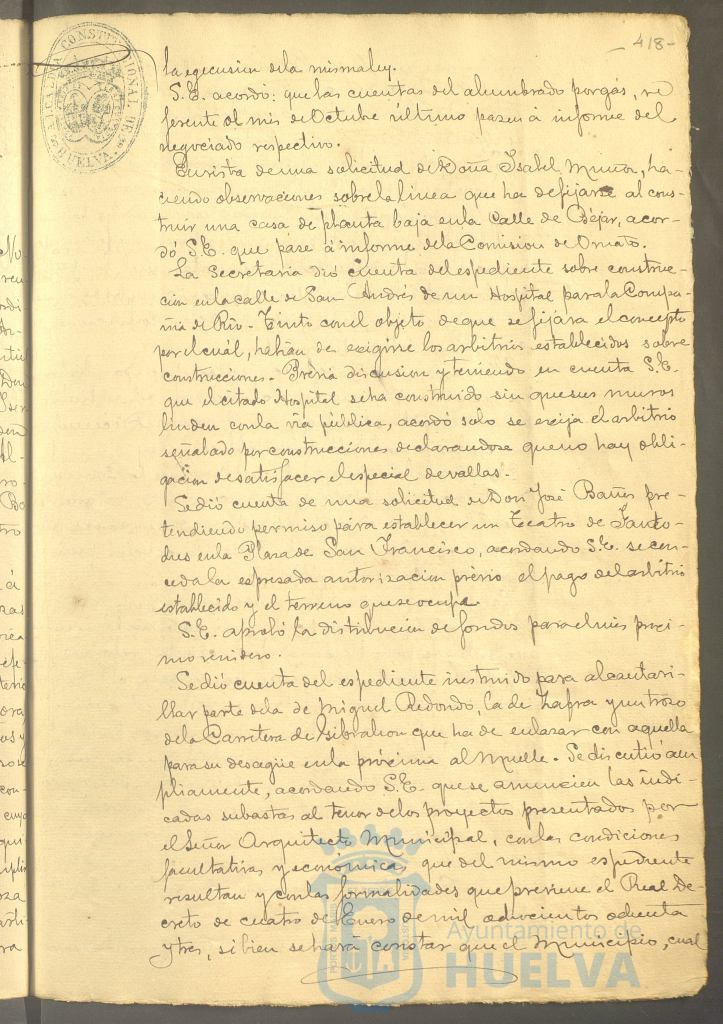 -418-
ALCALDIA CONSTITUCIONAL DE HUELVA.
la egecusion dela misma ley.
S.E. acordo: que las cuentas del alumbrado por gas, re
ferente al mes de Octubre último pasen á informe del
negociado respectivo.
En vista de una solicitud de Doña Isabel Muñoz, ha-
ciendo observaciones sobre la linea que ha de fijarse al cons-
truir una casa de planta baja en la Calle de Béjar, acor-
dó S.E. que pase á informe dela Comision de Ornato.
La Secretaria dió cuenta del espediente sobre construc-
cion en la calle de San Andrés de un Hospital para la Compa-
ñia de Rio-Tinto con el objeto de que se fijára el concepto
por el cuál, habian de exigirse los arbitrios establecidos sobre
construcciones. Prévia discusion y teniendo en cuenta S.E.
que el citado Hospital se ha construido sin que sus muros
linden con la via pública, acordó solo se exija el arbitrio
señalado por construcciones declarandose que no hay obli-
gacion de satisfacer el especial de vallas.
Se dió cuenta de una solicitud de Don José Bañes pre-
tendiendo permiso pára establecer un Teatro de Fanto-
ches en la Plaza de San Francisco, acordando S.E. se con-
ceda la espresada autorizacion prévio el pago del arbitrio
establecido y el terreno que se ocupe.
S.E. aprobó la distribucion de fondos para el mes proxi-
mo venidero.
Se dió cuenta del espediente instruido para alcantari-
llar parte dela de Miguel Redondo, la de Zafra y un trozo
dela Carretera de Gibraleon que ha de enlazar con aquella
para su desagüe en la próxima al Muelle. Se discutió am
pliamente, acordando S.E. que se anuncien las indi-
cadas subastas al tenor delos proyectos presentados por
el Señor Arquitecto Municipal, con las condiciones
facultativas y económicas que del mismo espediente
resultan y con las formalidades que previene el Real De-
creto de cuatro de Enero de mil ochocientos ochenta
y tres, si bien se hará constar que el Municipio, cual
Ayuntamiento de
HUELVA